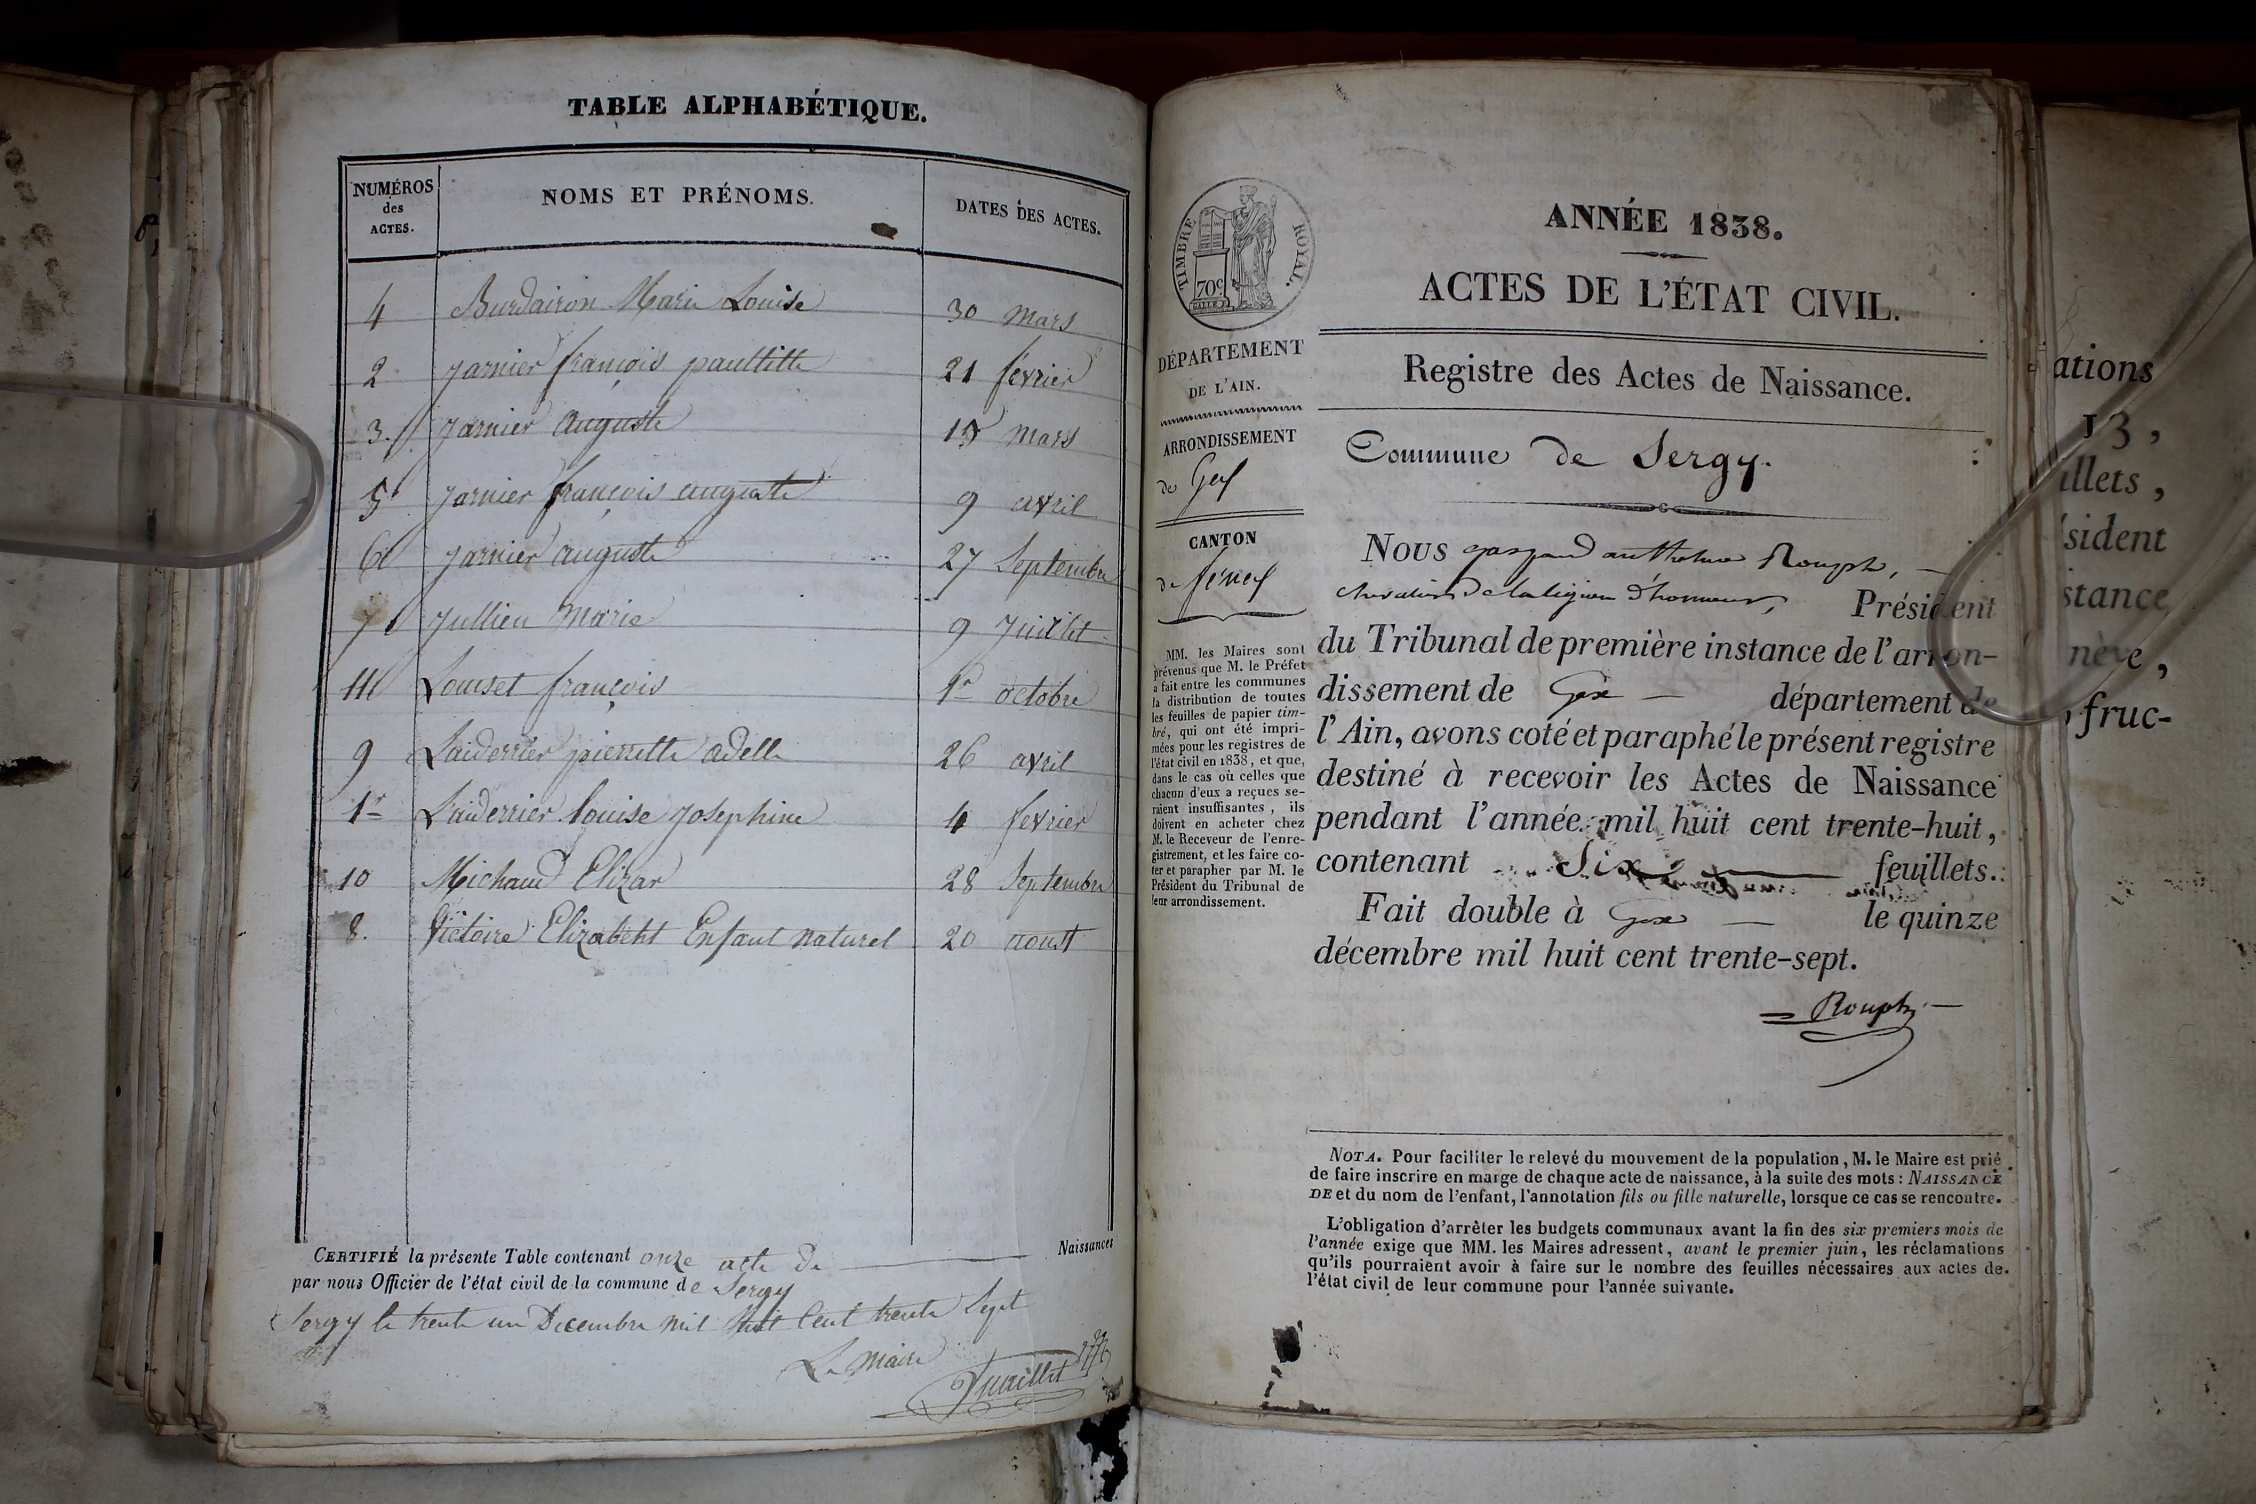 TABLE ALPHABÉTIQUE.
NUMÉROS
des
ACTES.
NOMS ET PRÉNOMS.
DATES DES ACTES.
4 Burdairon Marie Louise 30 mars
2 Jarnier françois 21 février
3. Jarnier auguste mars
5 Jarnier françois auguste 9 avril
6 Jarnier auguste 27 Septembre
7 Jullien Marie 9 Juillet
11 Louiset françois 1r octobre
9 Laiderrier pierrette adelle 26 avril
1r Laiderrier louise Josephine 4 fevrier
10 Michaud Elizar 28 Septembre
8. Victoire Elizabeht Enfant naturel 20 aoust
CERTIFIÉ la présente Table contenant onze acte de Naissances
par nous Officier de l'état civil de la commune de Sergy
Sergy le trente un Decembre mil huit Cent trente Sept
Le Maire
TIMBRE ROYAL.
70c.
ANNÉE 1838.
ACTES DE L'ÉTAT CIVIL.
Registre des Actes de Naissance.
DÉPARTEMENT
DE L'AIN.
ARRONDISSEMENT
de Gex
CANTON
de
MM. les Maires sont
prévenus que M. le Préfet
a fait entre les communes
la distribution de toutes
les feuilles de papier tim-
bré, qui ont été impri-
mées pour les registres de
l'état civil en 1838, et que,
dans le cas où celles que
chacun d'eux a reçues se-
raient insuffisantes, ils
doivent en acheter chez
M. le Receveur de l'enre-
gistrement, et les faire co-
ter et parapher par M. le
Président du Tribunal de
leur arrondissement.
Commune de Sergy.
NOUS gaspard Rouph,
chevalier de la légion d'honneur, Président
du Tribunal de première instance de l'arron-
dissement de Gex département de
l'Ain, avons coté et paraphé le présent registre
destiné à recevoir les Actes de Naissance
pendant l'année mil huit cent trente-huit,
contenant Six feuillets.
Fait double à Gex le quinze
décembre mil huit cent trente-sept.
Rouph
NOTA. Pour faciliter le relevé du mouvement de la population, M. le Maire est prié
de faire inscrire en marge de chaque acte de naissance, à la suite des mots: NAISSANCE
DE et du nom de l'enfant, l'annotation fils ou fille naturelle, lorsque ce cas se rencontre.
L'obligation d'arrêter les budgets communaux avant la fin des six premiers mois de
l'année exige que MM. les Maires adressent, avant le premier juin, les réclamations
qu'ils pourraient avoir à faire sur le nombre des feuilles nécessaires aux actes de
l'état civil de leur commune pour l'année suivante.
ations
13,
illets,
ésident
stance
nève,
fruc-